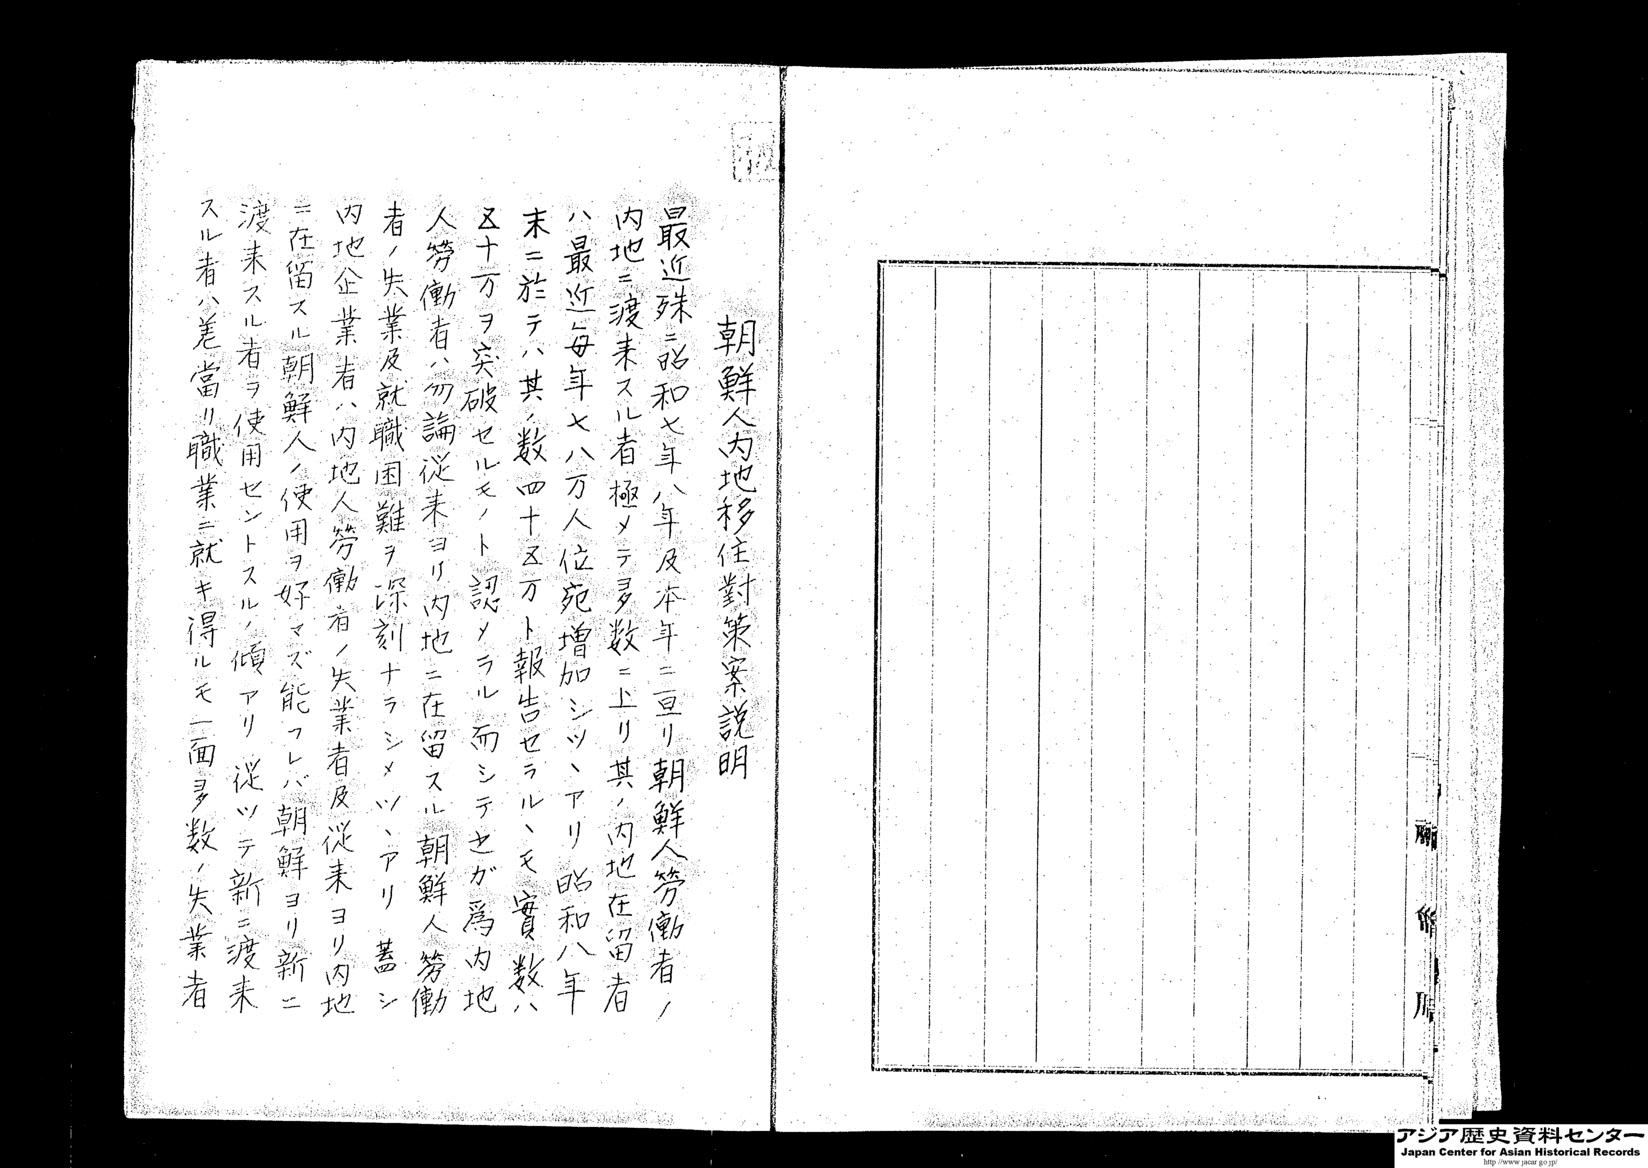 朝鮮人内地移住對策案説明
最近殊ニ昭和七年八年及本年ニ亘リ朝鮮人労働者ノ
内地ニ渡来スル者極メテ多数ニ上リ其ノ内地在留者
ハ最近毎年七八万人位宛増加シツヽアリ昭和八年
末ニ於テハ其ノ数四十五万ト報告セラルヽモ實数ハ
五十万ヲ突破セルモノト認メラル而シテ之ガ為内地
人労働者ハ勿論従来ヨリ内地ニ在留スル朝鮮人労働
者ノ失業及就職困難ヲ深刻ナラシメツヽアリ蓋シ
内地企業者ハ内地人労働者ノ失業者及従来ヨリ内地
ニ在留スル朝鮮人ノ使用ヲ好マズ能フレバ朝鮮ヨリ新ニ
渡来スル者ヲ使用セントスルノ傾アリ従ツテ新ニ渡来
スル者ハ差當リ職業ニ就キ得ルモ一面多数ノ失業者
アジア歴史資料センター
Japan Center for Asian Historical Records
http://www.jacar.go.jp/